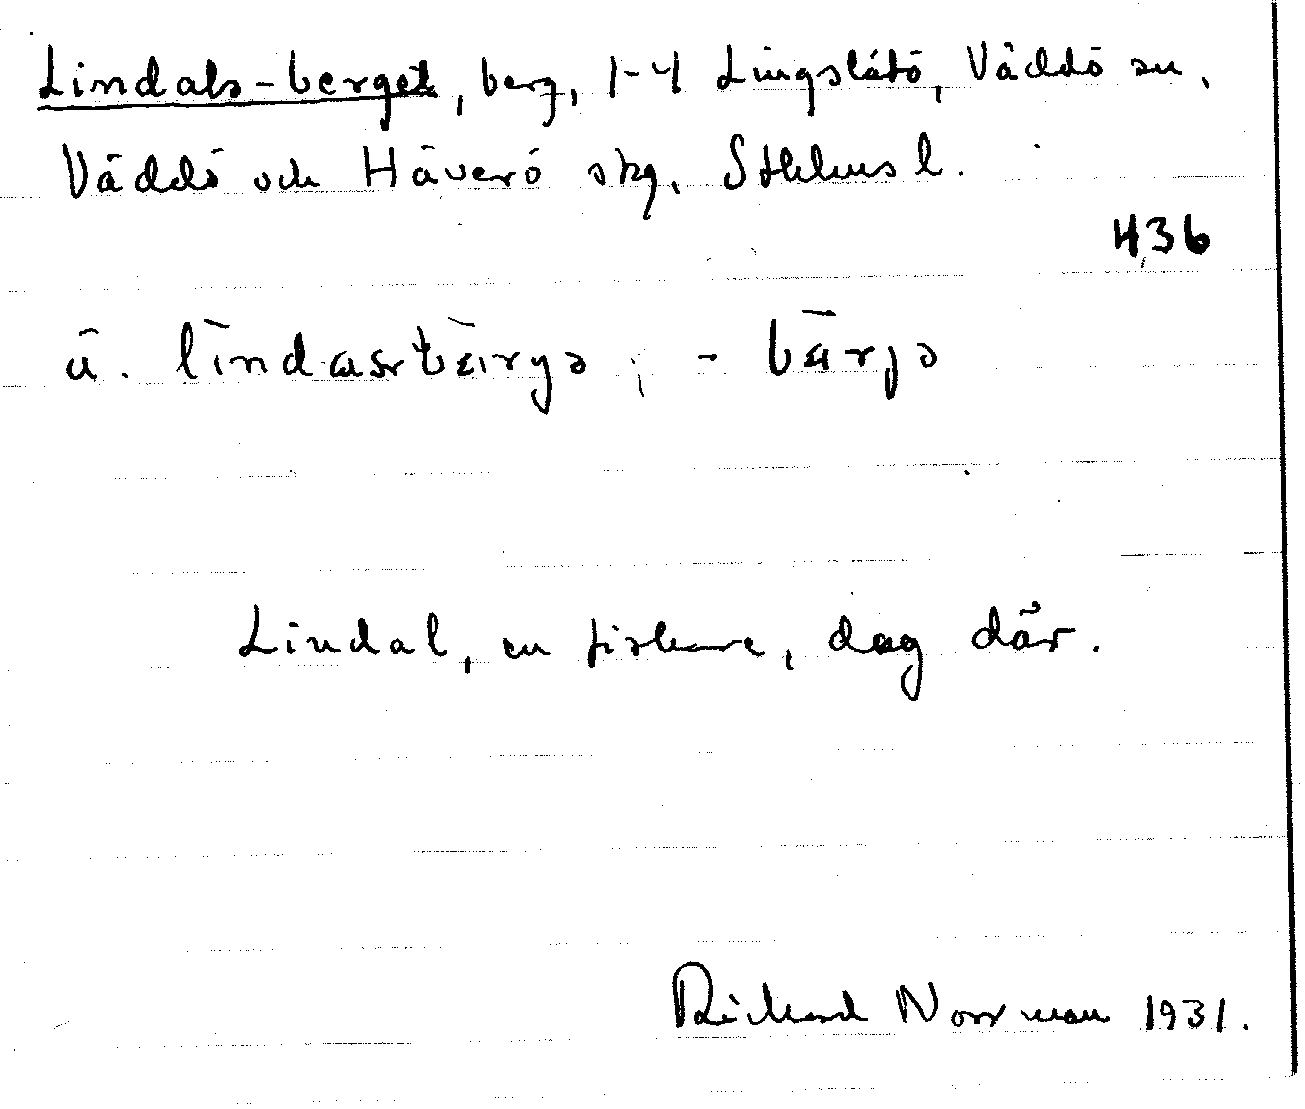 Lindals-berget, berg, 1-4 Lingslätö, Väddö sn,
Väddö och Häverö skg, Sthlms l.
436
Lindal, en fiskare, dog där.
Richard Norrman 1931.